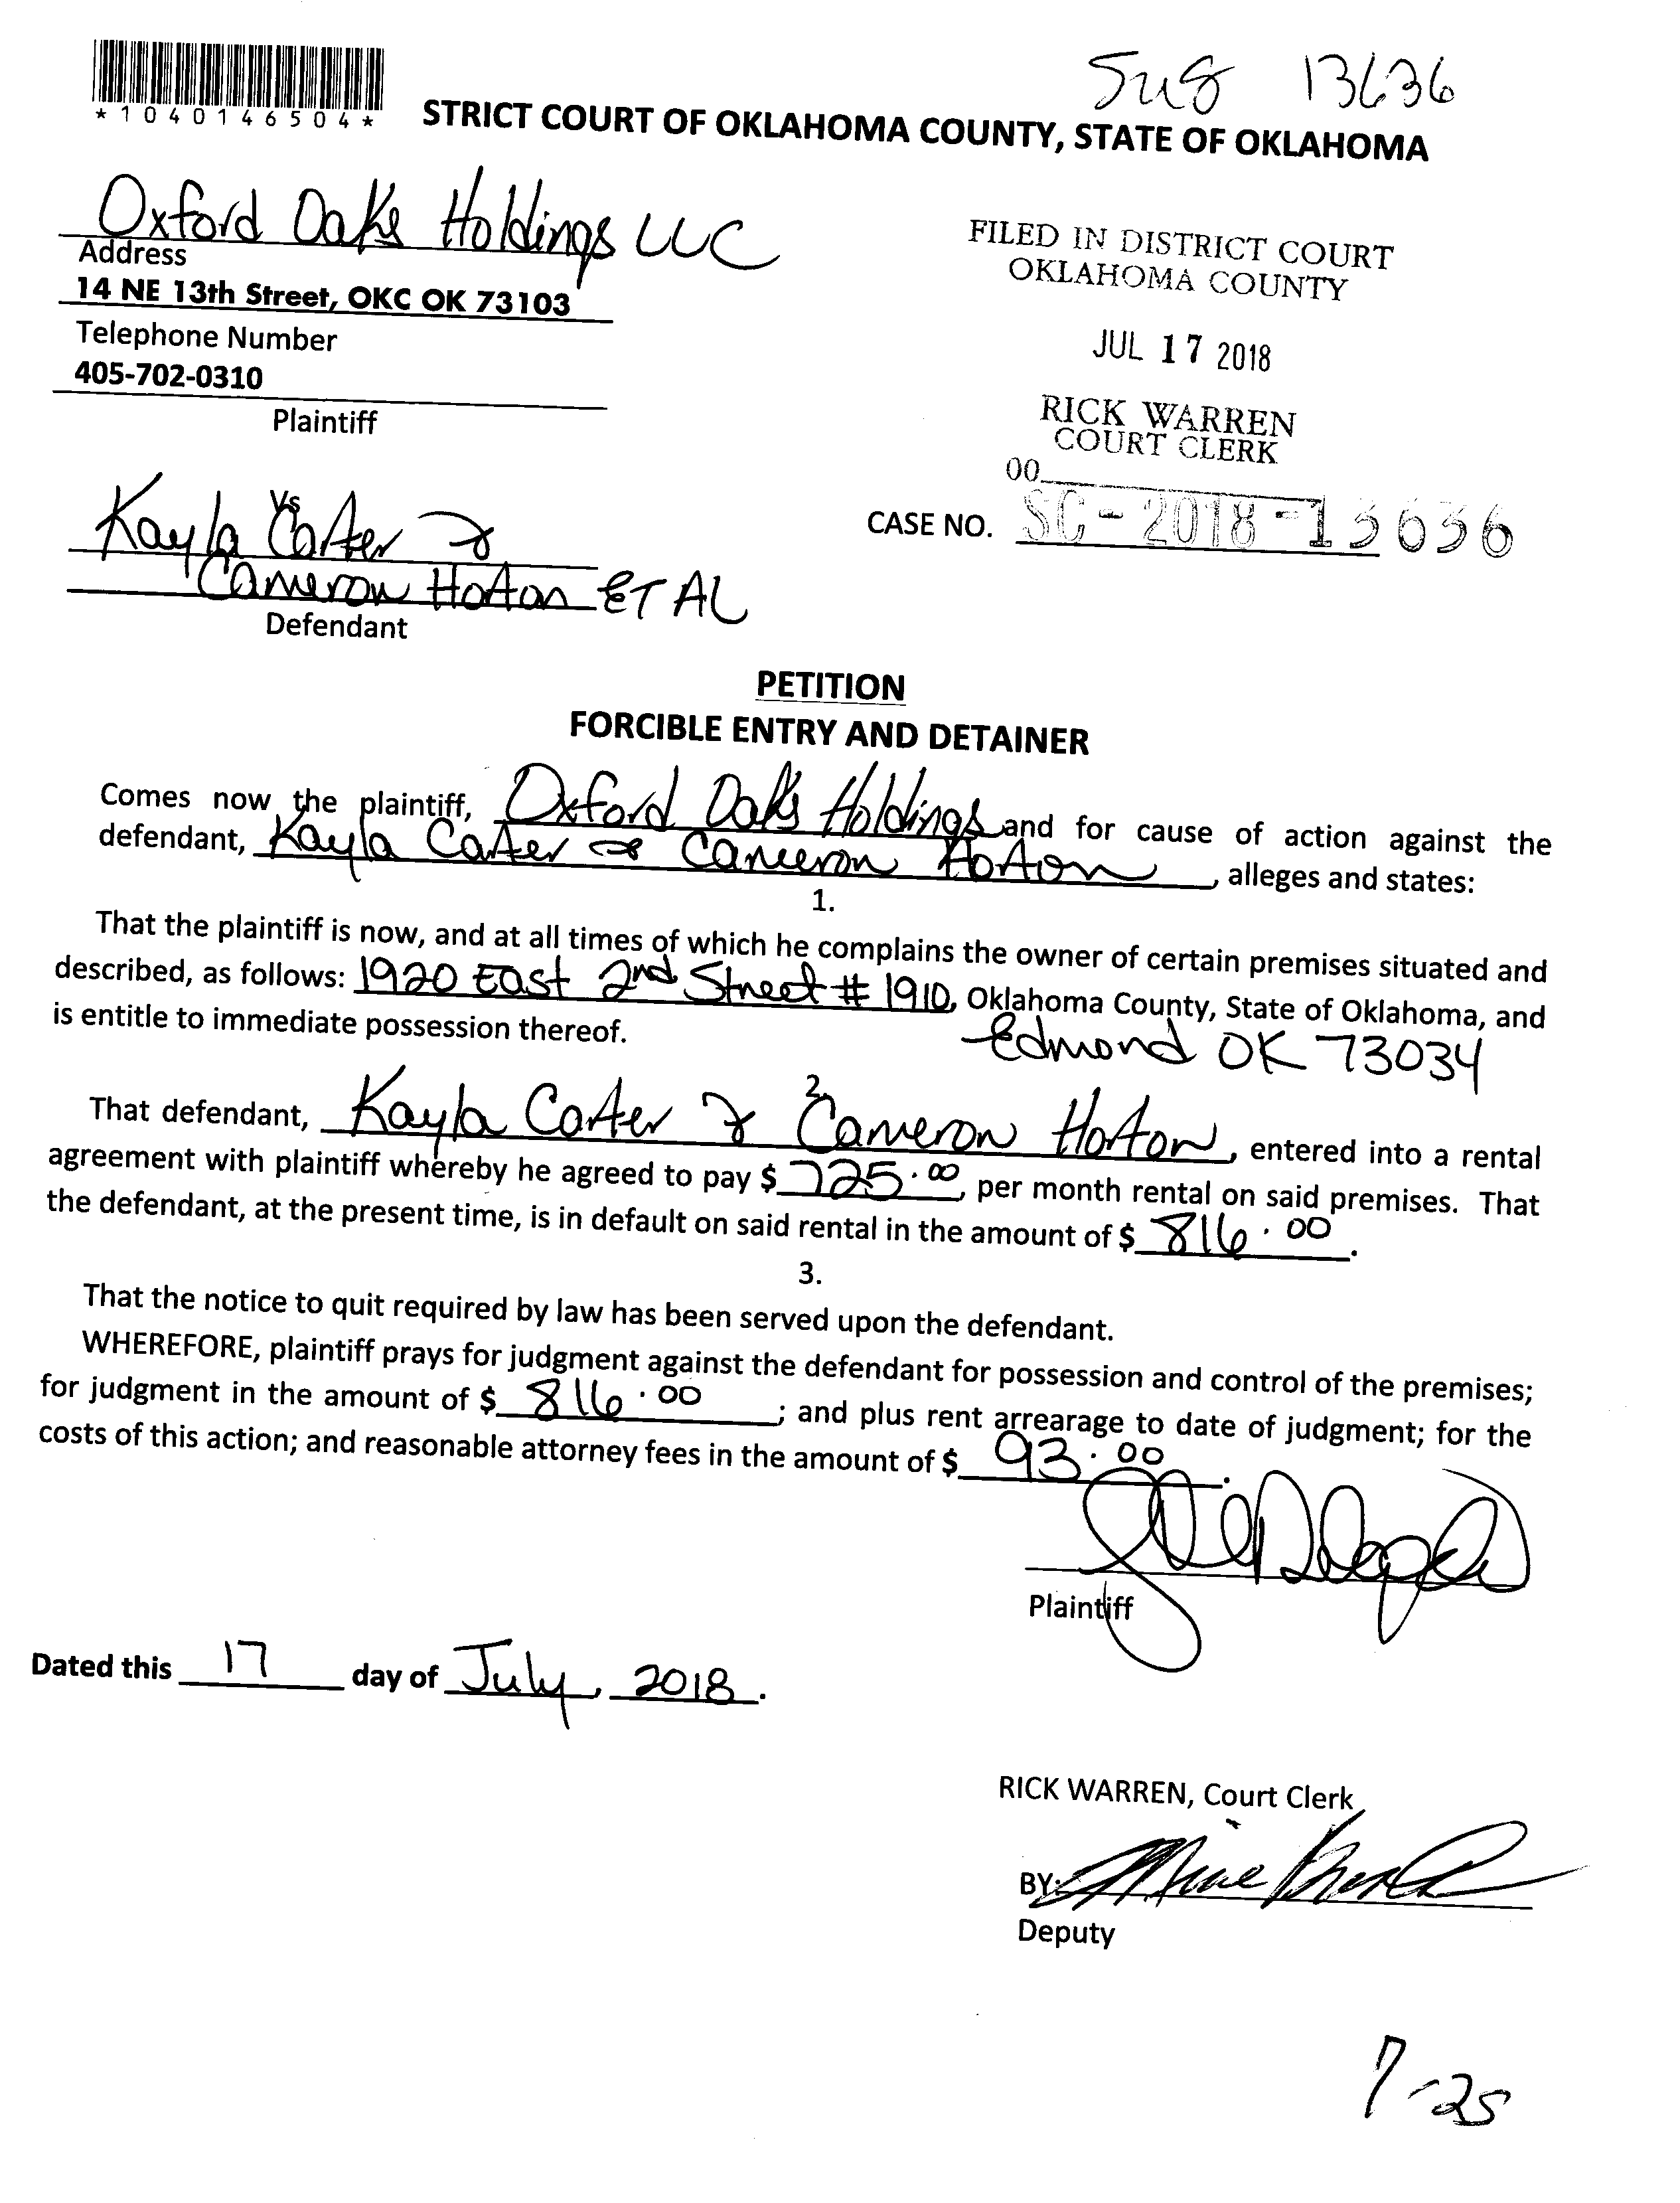 Sug 13636
*1040146504*
STRICT COURT OF OKLAHOMA COUNTY, STATE OF OKLAHOMA
Oxford Oaks Holdings LLC
Address
14 NE 13th Street, OKC OK 73103
Telephone Number
405-702-0310
Plaintiff
FILED IN DISTRICT COURT
OKLAHOMA COUNTY
JUL 17 2018
RICK WARREN
COURT CLERK
00
CASE NO. SC-2018-13636
Vs
Kayla Carter &
Cameron Horton ET AL
Defendant
PETITION
FORCIBLE ENTRY AND DETAINER
Comes now the plaintiff, Oxford Oaks Holdings and for cause of action against the
defendant, Kayla Carter & Cameron Horton, alleges and states:
1.
That the plaintiff is now, and at all times of which he complains the owner of certain premises situated and
described, as follows: 1920 East 2nd Street # 1910, Oklahoma County, State of Oklahoma, and
is entitle to immediate possession thereof.
Edmond OK 73034
2.
That defendant, Kayla Carter & Cameron Horton, entered into a rental
agreement with plaintiff whereby he agreed to pay $ 725.00, per month rental on said premises. That
the defendant, at the present time, is in default on said rental in the amount of $ 816.00.
3.
That the notice to quit required by law has been served upon the defendant.
WHEREFORE, plaintiff prays for judgment against the defendant for possession and control of the premises;
for judgment in the amount of $ 816.00; and plus rent arrearage to date of judgment; for the
costs of this action; and reasonable attorney fees in the amount of $ 93.00.
Plaintiff
Dated this 17 day of July, 2018.
RICK WARREN, Court Clerk
BY:
Deputy
7-25